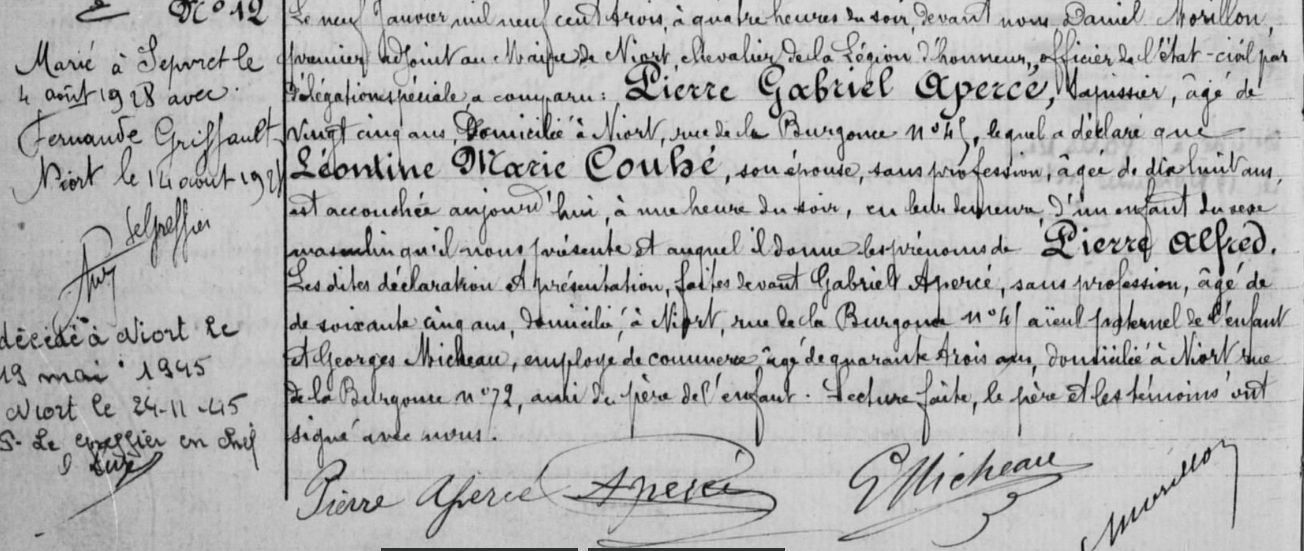 N° 12
Marié à Sepvret le
4 août 1928 avec
Fernande Griffault
Niort le 14 août 1928
Le greffier
décédé à Niort le
19 mai 1945
Niort le 24-11-45
P. Le greffier en chef
Le neuf Janvier mil neuf cent trois, à quatre heures du soir, devant nous Daniel Morillon
premier adjoint au Maire de Niort, chevalier de la Légion d'honneur, officier de l'état-civil par
délégation spéciale, a comparu : Pierre Gabriel Apercé, tapissier, âgé de
vingt cinq ans, Domicilié à Niort, rue de la Burgonce n° 45, lequel a déclaré que
Léontine Marie Couhé, son épouse, sans profession, âgée de dix huit ans,
est accouchée aujourd'hui, à une heure du soir, en leur demeure, d'un enfant du sexe
masculin qu'il nous présente et auquel il donne les prénoms de Pierre Alfred.
Les dites déclaration et présentation, faites devant Gabriel Apercé, sans profession, âgé de
de soixante cinq ans, domicilié à Niort, rue de la Burgonce n° 45 aïeul paternel de l'enfant
et Georges Micheau, employé de commerce, âgé de quarante trois ans, domicilié à Niort rue
de la Burgonce n° 72, ami du père de l'enfant. Lecture faite, le père et les témoins ont
signé avec nous.
Pierre Apercé Apercé GMicheau Morillon